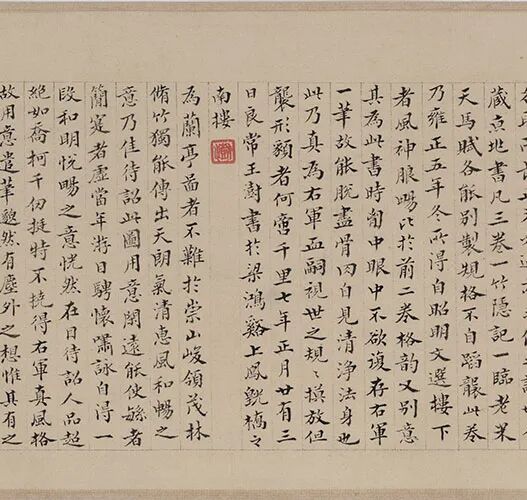 書凡三卷一竹隱記一臨老米
天馬賦各能別製規格不自蹈襲此卷
乃雍正五年冬所得自昭明文選樓下
者風神服暢比於前二卷格韵又別意
其為此書時匈中眼中不欲復存右軍
一筆故能脫盡骨肉自見清淨法身也
此乃真為右軍血嗣視世之規〻摸放但
襲形貌者何啻千里七年正月廿有三
日良常王澍書於梁鴻谿上鳧鶃橋之
南樓
為蘭亭圖者不難於崇山峻領茂林
脩竹獨能傳出天朗氣清惠風和暢之
意乃佳待詔此圖用意閑遠能使緐者
簡寔者虛當年游目騁懷嘯詠自得一
段和明悅暢之意恍然在目待詔人品超
絕如喬柯千仞挺特不撓得右軍真風格
故用意遣筆邈然有塵外之想惟其有之